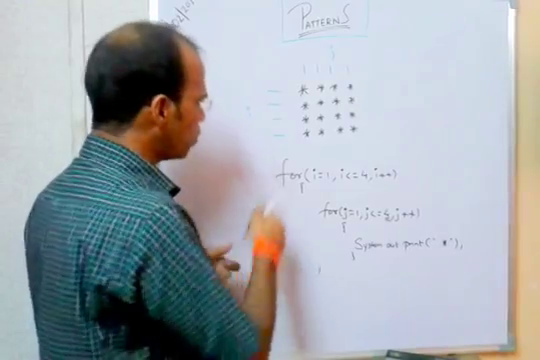 02/20
PATTERNS
* * * *
* * * *
* * * *
* * * *
for(i=1, i<=4, i++)
for(j=1, j<=4, j++)
System out print(" *");